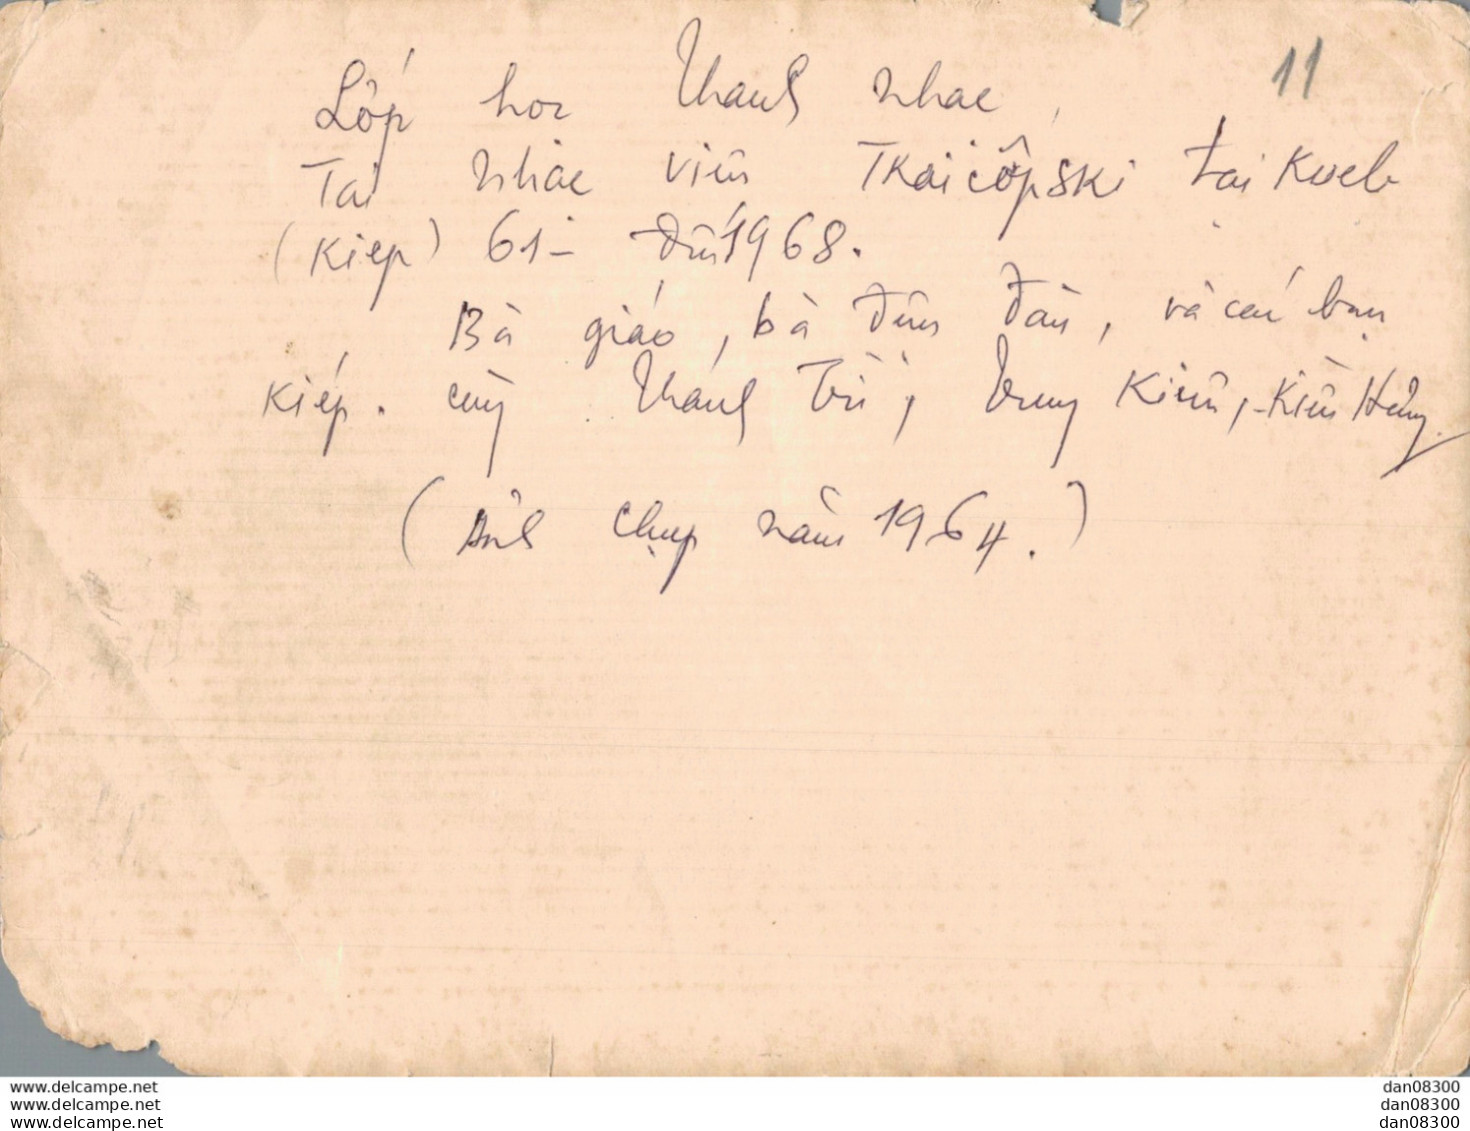 11
Lớp học Thanh nhạc,
Tại nhạc viện Tkaicôpski tại Kueb
(Kiep) 61- đến 1968.
Bà giáo, bà đệm đàn, và các bạn
Kiép. cùng Khánh Trí, Trung Kiên, Kiên Hùng.
(Ảnh chụp năm 1964.)
www.delcampe.net
www.delcampe.net
www.delcampe.net
dan08300
dan08300
dan08300